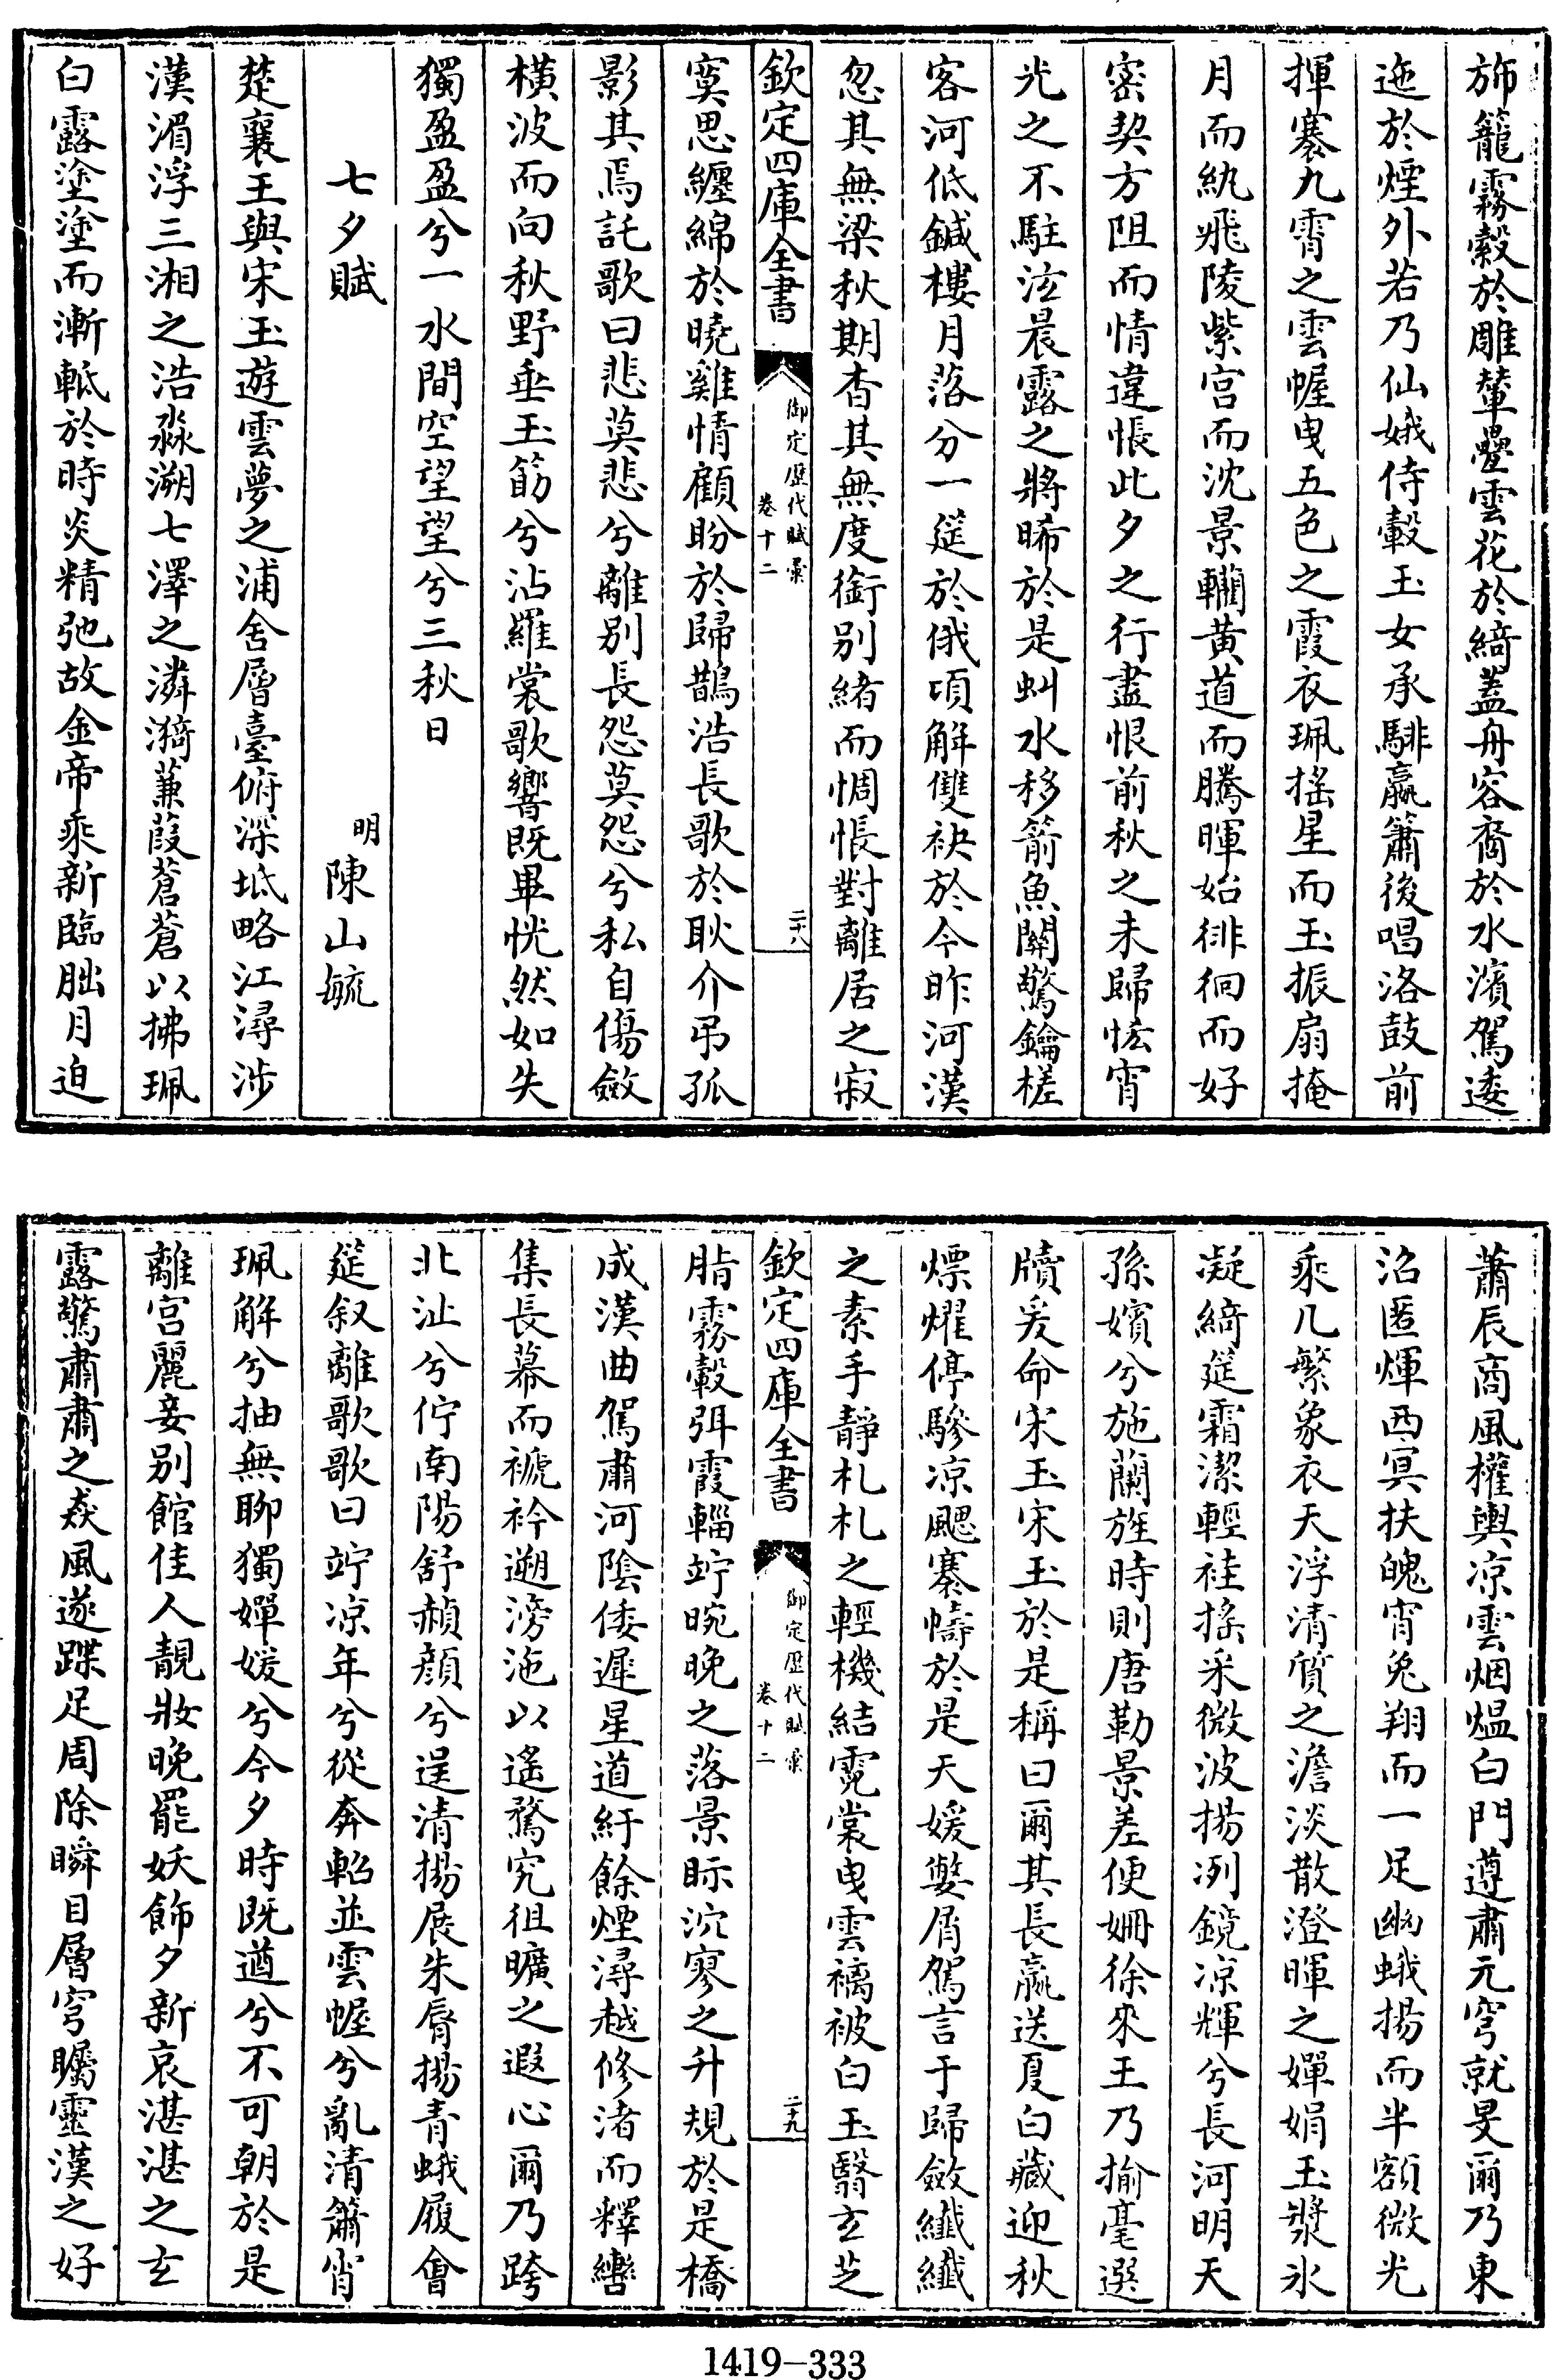 斾籠霧縠於雕輦疊雲花於綺蓋舟容裔於水濱駕逶
迤於煙外若乃仙娥侍轂玉女承騑嬴簫後唱洛鼓前
揮褰九霄之雲幄曳五色之霞衣珮搖星而玉振扇掩
月而紈飛陵紫宫而沈景轥黄道而騰暉始徘徊而好
密契方阻而情違悵此夕之行盡恨前秋之未歸惜宵
光之不駐泫晨露之將晞於是虯水移箭魚關驚鑰槎
客河低鍼樓月落分一筵於俄頃解雙袂於今昨河漢
忽其無梁秋期杳其無度銜别緒而惆悵對離居之寂
欽定四庫全書
御定歷代賦彙
卷十二
二十八
寞思纏綿於曉雞情顧盼於歸鵲浩長歌於耿介弔孤
影其焉託歌曰悲莫悲兮離别長怨莫怨兮私自傷斂
横波而向秋野垂玉筯兮沾羅裳歌響既畢恍然如失
獨盈盈兮一水間空望望兮三秋日
七夕賦
明
陳山毓
楚襄王與宋玉遊雲夢之浦舍層臺俯深坻略江潯涉
漢湄浮三湘之浩淼溯七澤之潾漪蒹葭蒼蒼以拂珮
白露塗塗而漸軧於時炎精弛故金帝乘新臨朏月迫
蕭辰商風權輿凉雲烟煴白門遵肅元穹就旻爾乃東
沼匿煇西冥扶魄宵兔翔而一足幽蛾揚而半額微光
乘几繁象衣天浮清質之澹淡散澄暉之嬋娟玉漿氷
凝綺筵霜潔輕袿搖采微波揚冽鏡凉輝兮長河明天
孫嬪兮施蘭旌時則唐勒景差便姍徐來王乃揄毫選
牘爰命宋玉宋玉於是稱曰爾其長嬴送夏白藏迎秋
熛燿停驂凉颸褰幬於是天媛嬖屑駕言于歸斂纖纖
之素手靜札札之輕機結霓裳曳雲褵被白玉翳玄芝
欽定四庫全書
御定歷代賦彙
卷十二
二十九
脂霧轂弭霞輜竚晼晚之落景眎泬寥之升規於是橋
成漢曲駕肅河陰倭遲星道紆餘煙潯越修渚而釋轡
集長幕而褫衿遡滂沲以遙騖究徂曠之遐心爾乃跨
北沚兮佇南陽舒赬顔兮逞清揚展朱脣揚青蛾履㑹
筵叙離歌歌曰竚凉年兮從奔軺並雲幄兮亂清簫宵
珮解兮抽無聊獨嬋媛兮今夕時既遒兮不可朝於是
離宫麗妾别館佳人靚妝晚罷妖飾夕新哀湛湛之玄
露驚肅肅之猋風遂蹀足周除瞬目層穹矚靈漢之好
1419-333